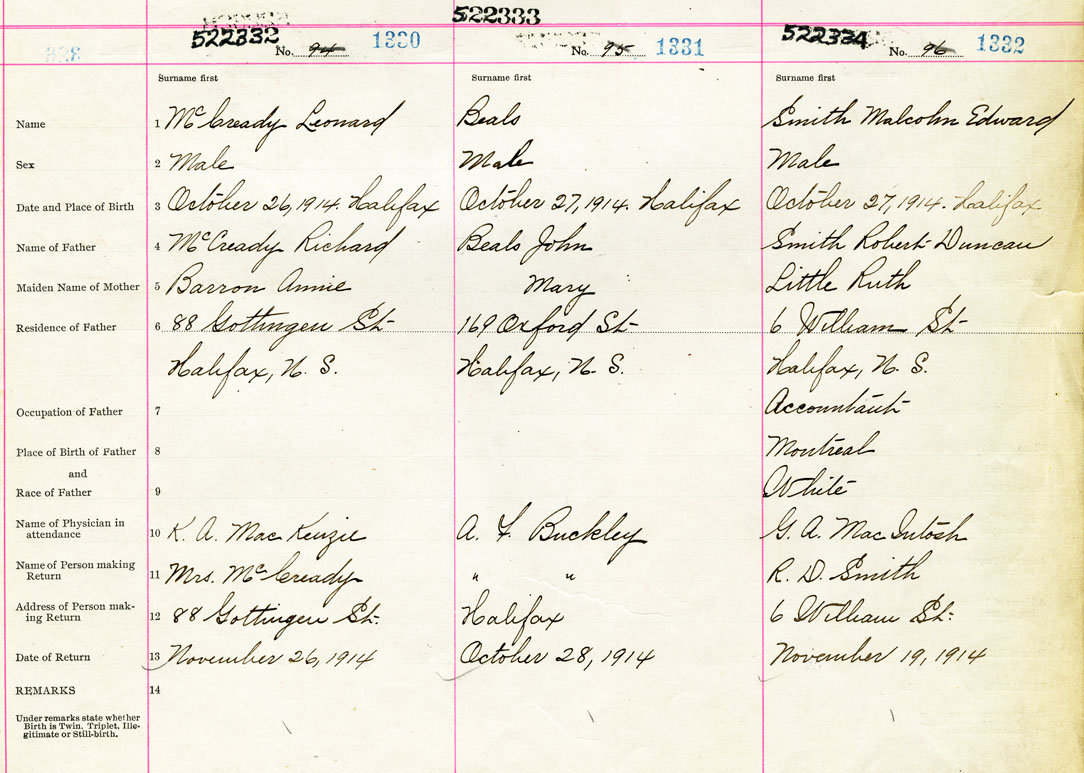 522333
522332 No. 94 1330
No. 95 1331
522334 No. 96 1332
Surname first Surname first Surname first
Name 1 McCready Leonard Beals Smith Malcolm Edward
Sex 2 Male Male Male
Date and Place of Birth 3 October 26, 1914. Halifax October 27, 1914. Halifax October 27, 1914. Halifax
Name of Father 4 McCready Richard Beals John Smith Robert Duncan
Maiden Name of Mother 5 Barron Annie Mary Little Ruth
Residence of Father 6 88 Gottingen St. 169 Oxford St. 6 William St.
Halifax, N. S. Halifax, N. S. Halifax, N. S.
Occupation of Father 7 Accountant
Place of Birth of Father 8 Montreal
and
Race of Father 9 White
Name of Physician in
attendance 10 K. A. MacKenzie A. F. Buckley G. A. MacIntosh
Name of Person making
Return 11 Mrs. McCready " " R. D. Smith
Address of Person mak-
ing Return 12 88 Gottingen St. Halifax 6 William St.
Date of Return 13 November 26, 1914 October 28, 1914 November 19, 1914
REMARKS 14
Under remarks state whether
Birth is Twin, Triplet, Ille-
gitimate or Still-birth.